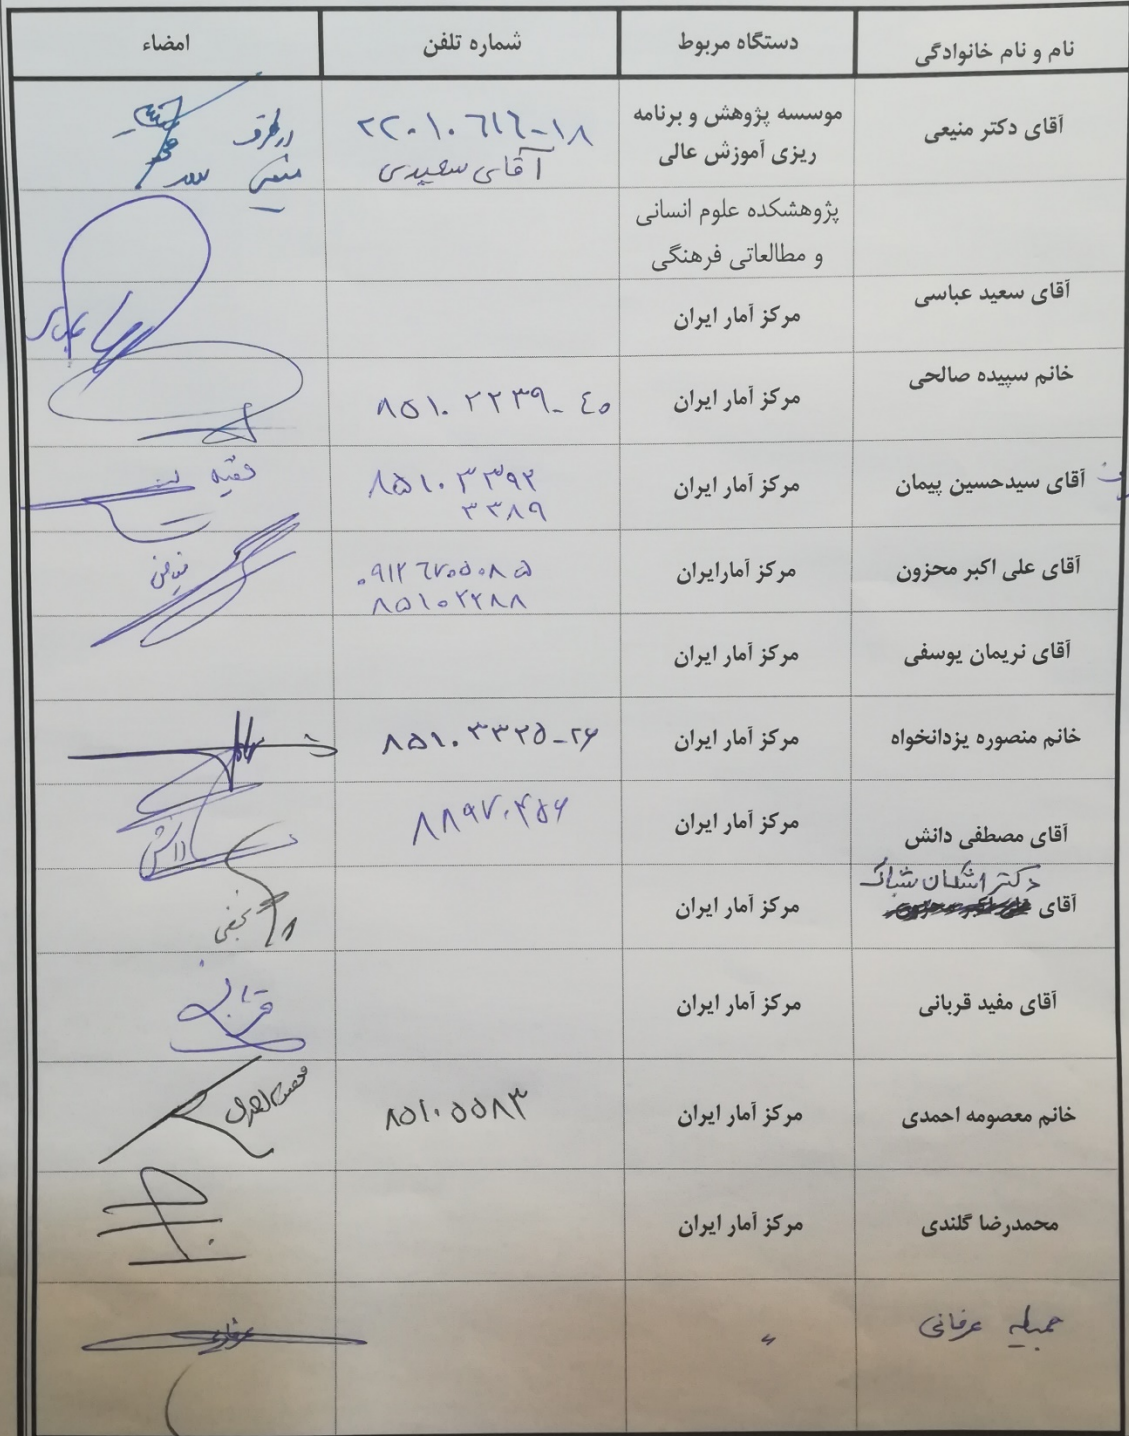 نام و نام خانوادگی
دستگاه مربوط
شماره تلفن
امضاء
آقای دکتر منیعی
موسسه پژوهش و برنامه
ریزی آموزش عالی
۲۲۰۱۰۶۱۶-۱۸
آقای سعیدی
از طرف
پژوهشکده علوم انسانی
و مطالعاتی فرهنگی
آقای سعید عباسی
مرکز آمار ایران
خانم سپیده صالحی
مرکز آمار ایران
۸۵۱۰۲۲۳۹-۴۰
آقای سیدحسین پیمان
مرکز آمار ایران
۸۵۱۰۳۳۹۲
۳۳۸۹
فقیه
آقای علی اکبر محزون
مرکز آمارایران
۰۹۱۲۶۷۰۵۰۸۵
۸۵۱۰۲۲۸۸
آقای نریمان یوسفی
مرکز آمار ایران
خانم منصوره یزدانخواه
مرکز آمار ایران
۸۵۱۰۳۳۲۵-۲۶
آقای مصطفی دانش
مرکز آمار ایران
۸۸۹۷۰۴۵۶
دانش
دکتر اشکان شباک
آقای
مرکز آمار ایران
نجفی
آقای مفید قربانی
مرکز آمار ایران
خانم معصومه احمدی
مرکز آمار ایران
۸۵۱۰۵۵۸۳
محمدرضا گلندی
مرکز آمار ایران
عرفانی